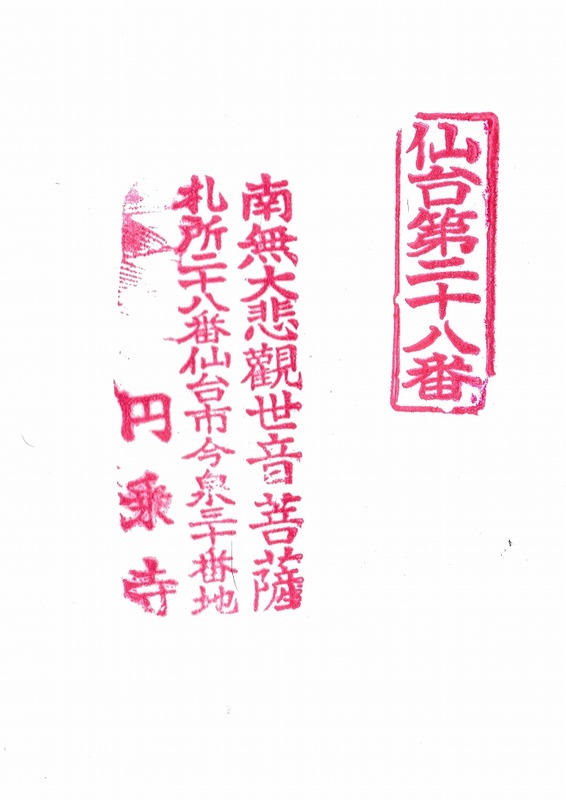 仙台第二十八番
南無大悲觀世音菩薩
札所二十八番仙台市今泉三十番地
円乗寺